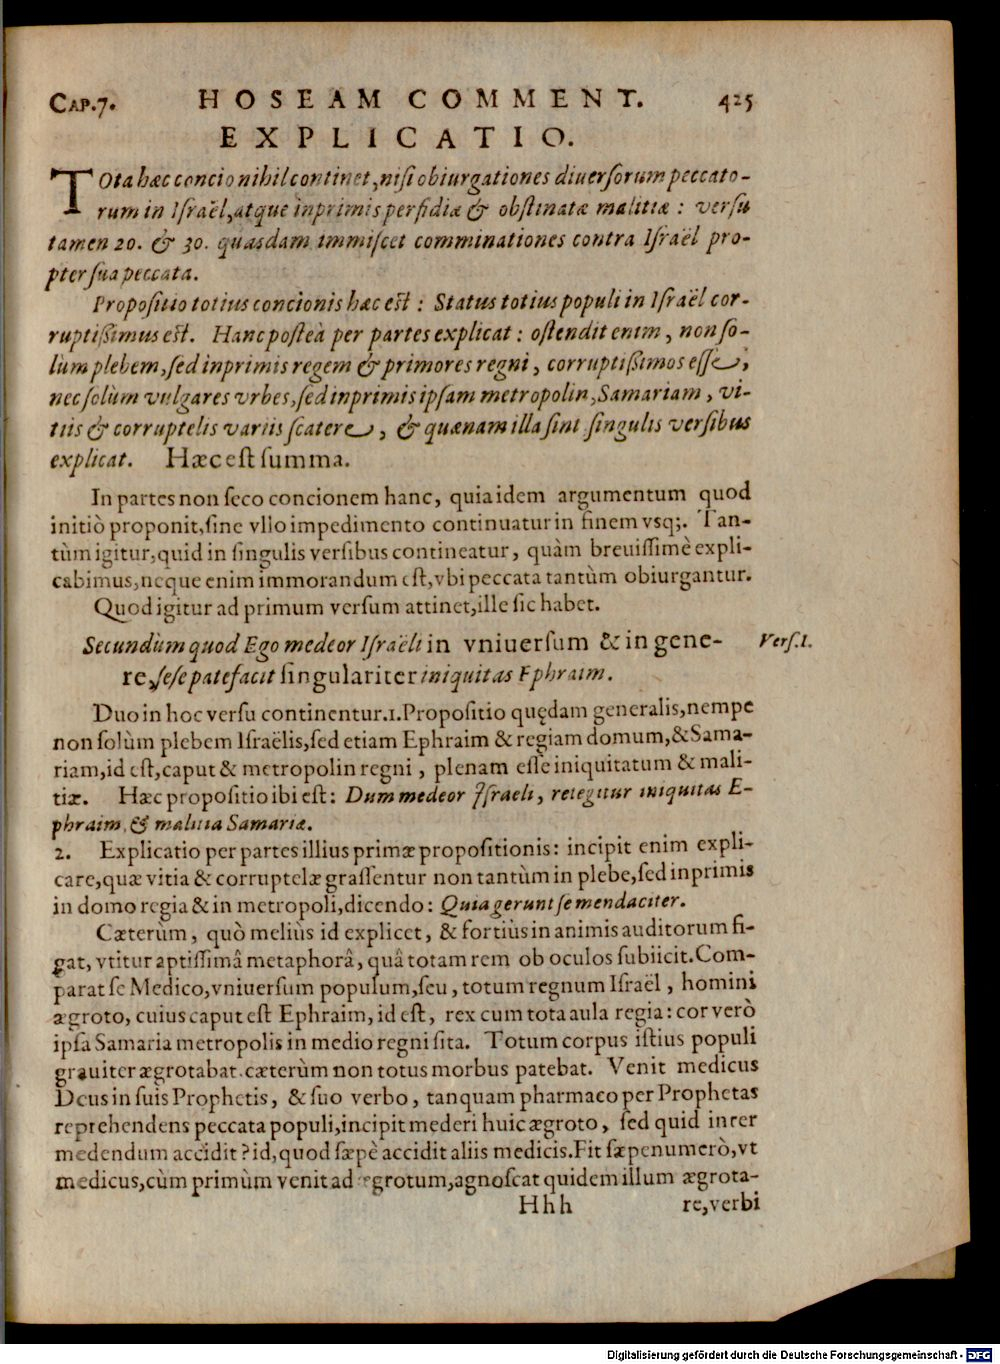 CAP.7. HOSEAM COMMENT. 425
EXPLICATIO.
TOta hæc concio nihil continet, nisi obiurgationes diuersorum peccato-
rum in Israël, atque inprimis perfidiæ & obstinatæ malitiæ : versu
tamen 20. & 30. quasdam immiscet comminationes contra Israël pro-
pter sua peccata.
Propositio totius concionis hæc est : Status totius populi in Israël cor-
ruptißimus est. Hanc posteà per partes explicat : ostendit enim, non so-
lùm plebem, sed inprimis regem & primores regni, corruptißimos esse,
nec solùm vulgares vrbes, sed inprimis ipsam metropolin, Samariam, vi-
tiis & corruptelis variis scatere, & quænam illa sint singulis versibus
explicat. Hæc est summa.
In partes non seco concionem hanc, quia idem argumentum quod
initiò proponit, sine vllo impedimento continuatur in finem vsq;. Tan-
tùm igitur, quid in singulis versibus contineatur, quàm breuissimè expli-
cabimus, neque enim immorandum est, vbi peccata tantùm obiurgantur.
Quod igitur ad primum versum attinet, ille sic habet.
Secundùm quod Ego medeor Israëli in vniuersum & in gene- Vers.1.
re, sese patefacit singulariter iniquitas Ephraim.
Duo in hoc versu continentur. 1. Propositio quędam generalis, nempe
non solùm plebem Israëlis, sed etiam Ephraim & regiam domum, & Sama-
riam, id est, caput & metropolin regni, plenam esse iniquitatum & mali-
tiæ. Hæc propositio ibi est: Dum medeor Israeli, retegitur iniquitas E-
phraim, & malitia Samariæ.
2. Explicatio per partes illius primæ propositionis: incipit enim expli-
care, quæ vitia & corruptelæ grassentur non tantùm in plebe, sed inprimis
in domo regia & in metropoli, dicendo: Quia gerunt se mendaciter.
Cæterùm, quò meliùs id explicet, & fortiùs in animis auditorum fi-
gat, vtitur aptissimâ metaphorâ, quâ totam rem ob oculos subiicit. Com-
parat se Medico, vniuersum populum, seu, totum regnum Israël, homini
ægroto, cuius caput est Ephraim, id est, rex cum tota aula regia: cor verò
ipsa Samaria metropolis in medio regni sita. Totum corpus istius populi
grauiter ægrotabat. cæterùm non totus morbus patebat. Venit medicus
Deus in suis Prophetis, & suo verbo, tanquam pharmaco per Prophetas
reprehendens peccata populi, incipit mederi huic ægroto, sed quid inter
medendum accidit? id, quod sæpè accidit aliis medicis. Fit sæpenumerò, vt
medicus, cùm primùm venit ad ægrotum, agnoscat quidem illum ægrota-
Hhh re, verbi
Digitalisierung gefördert durch die Deutsche Forschungsgemeinschaft - DFG